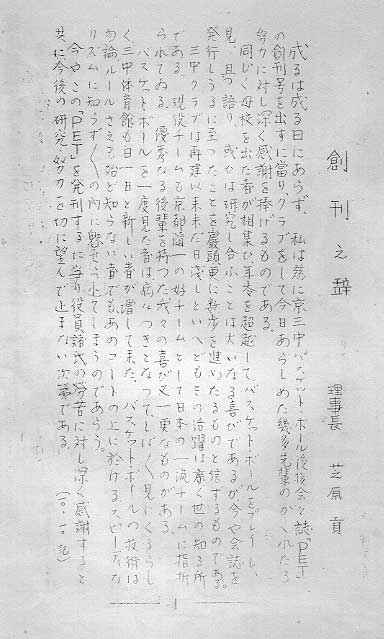 創刊之辞
理事長 芝原貢
成るは成る日にあらず、私は茲に京三中バスケット・ホール後援会々誌「PEJ」
の創刊号を出すに當り、クラブをして今日あらしめた幾多先輩のかくれたる
努力に対し深く感謝を捧げるものである。
同じく母校を出た者が相集ひ年令を超越してバスケットボールをプレイし、
見、且つ語り、或ひは研究し合ふことは大いなる喜びであるが今や会誌を
発行しうるに至ったことを 更に数歩を進めたるものと信ずるものである。
三中クラブは再建以来未だ日浅しといへどもその活躍は廣く世の知る所
である。現役チームも京都随一の好チームとして日本の一流チームに指折
られてゐる。優秀なる後輩を持つた我々の喜び又一更なものがある。
バスケットボールを一度見た者は病みつきとなつてしば〱見にくるらし
く三中体育館も日一日と新しい者が増して来た。バスケットボールの技術は
勿論ルールさえても殆ど知らない者でもあのコートの上に於けるスピーディな
リズムに知らず〱の内に魅せられてしまうのであらう。
今やこの「PEJ」を発刊するに当り役員諸氏の労苦に対し深く感謝すると
共に今後の研究、努力を切に望んで止まない次第である。
(一〇・一〇 記)
1